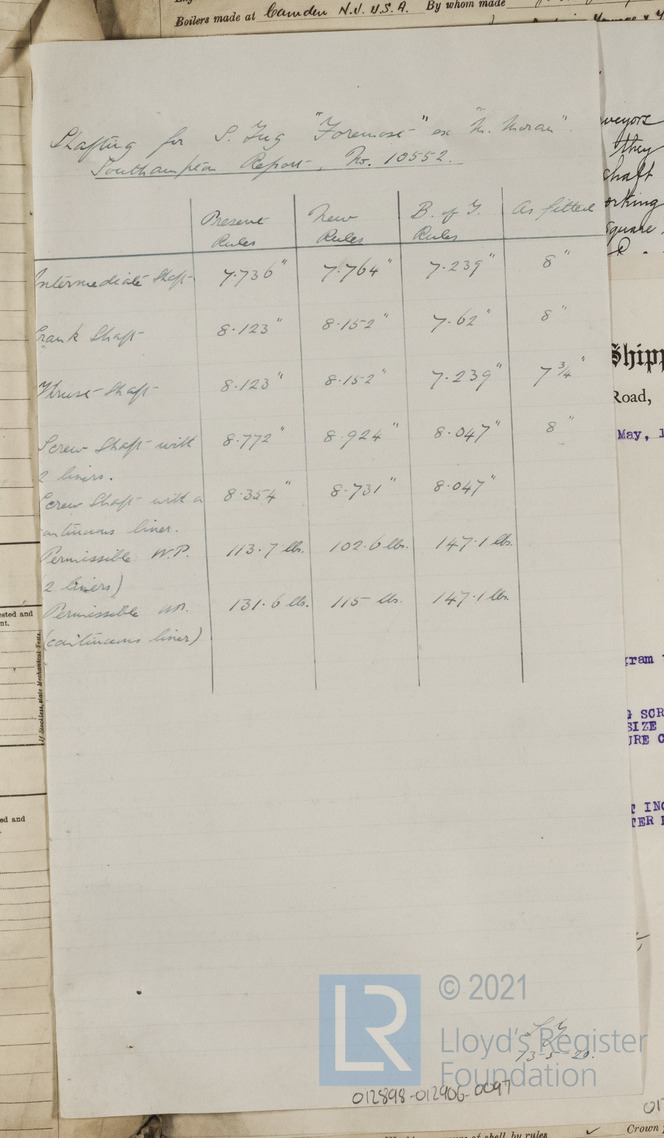 Boilers made at Camden N.J. U.S.A. By whom made
Shafting for S. Tug "Foremost" ex "M. Moran".
Southampton Report, No. 10552.
Present Rules New Rules B. of T. Rules As fitted
Intermediate Shaft 7.736" 7.764" 7.239" 8"
Crank Shaft 8.123" 8.152" 7.62" 8"
Thrust Shaft 8.123" 8.152" 7.239" 7 3/4"
Screw Shaft with 8.772" 8.924" 8.047" 8"
2 liners.
Screw Shaft with a 8.354" 8.731" 8.047"
continuous liner.
Permissible W.P. 113.7 lbs. 102.6 lbs. 147.1 lbs.
2 liners)
Permissible W.P. 131.6 lbs. 115 lbs. 147.1 lbs
(continuous liner)
they
shaft
orking
square
Shipp
Road,
May, 1
gram
G SCR
SIZE
URE C
T INC
TER
ested and
nt.
ed and
© 2021
LR
Lloyd's Register
Foundation
13-5-20.
012898-012906-0097
of shell by rules
Crown